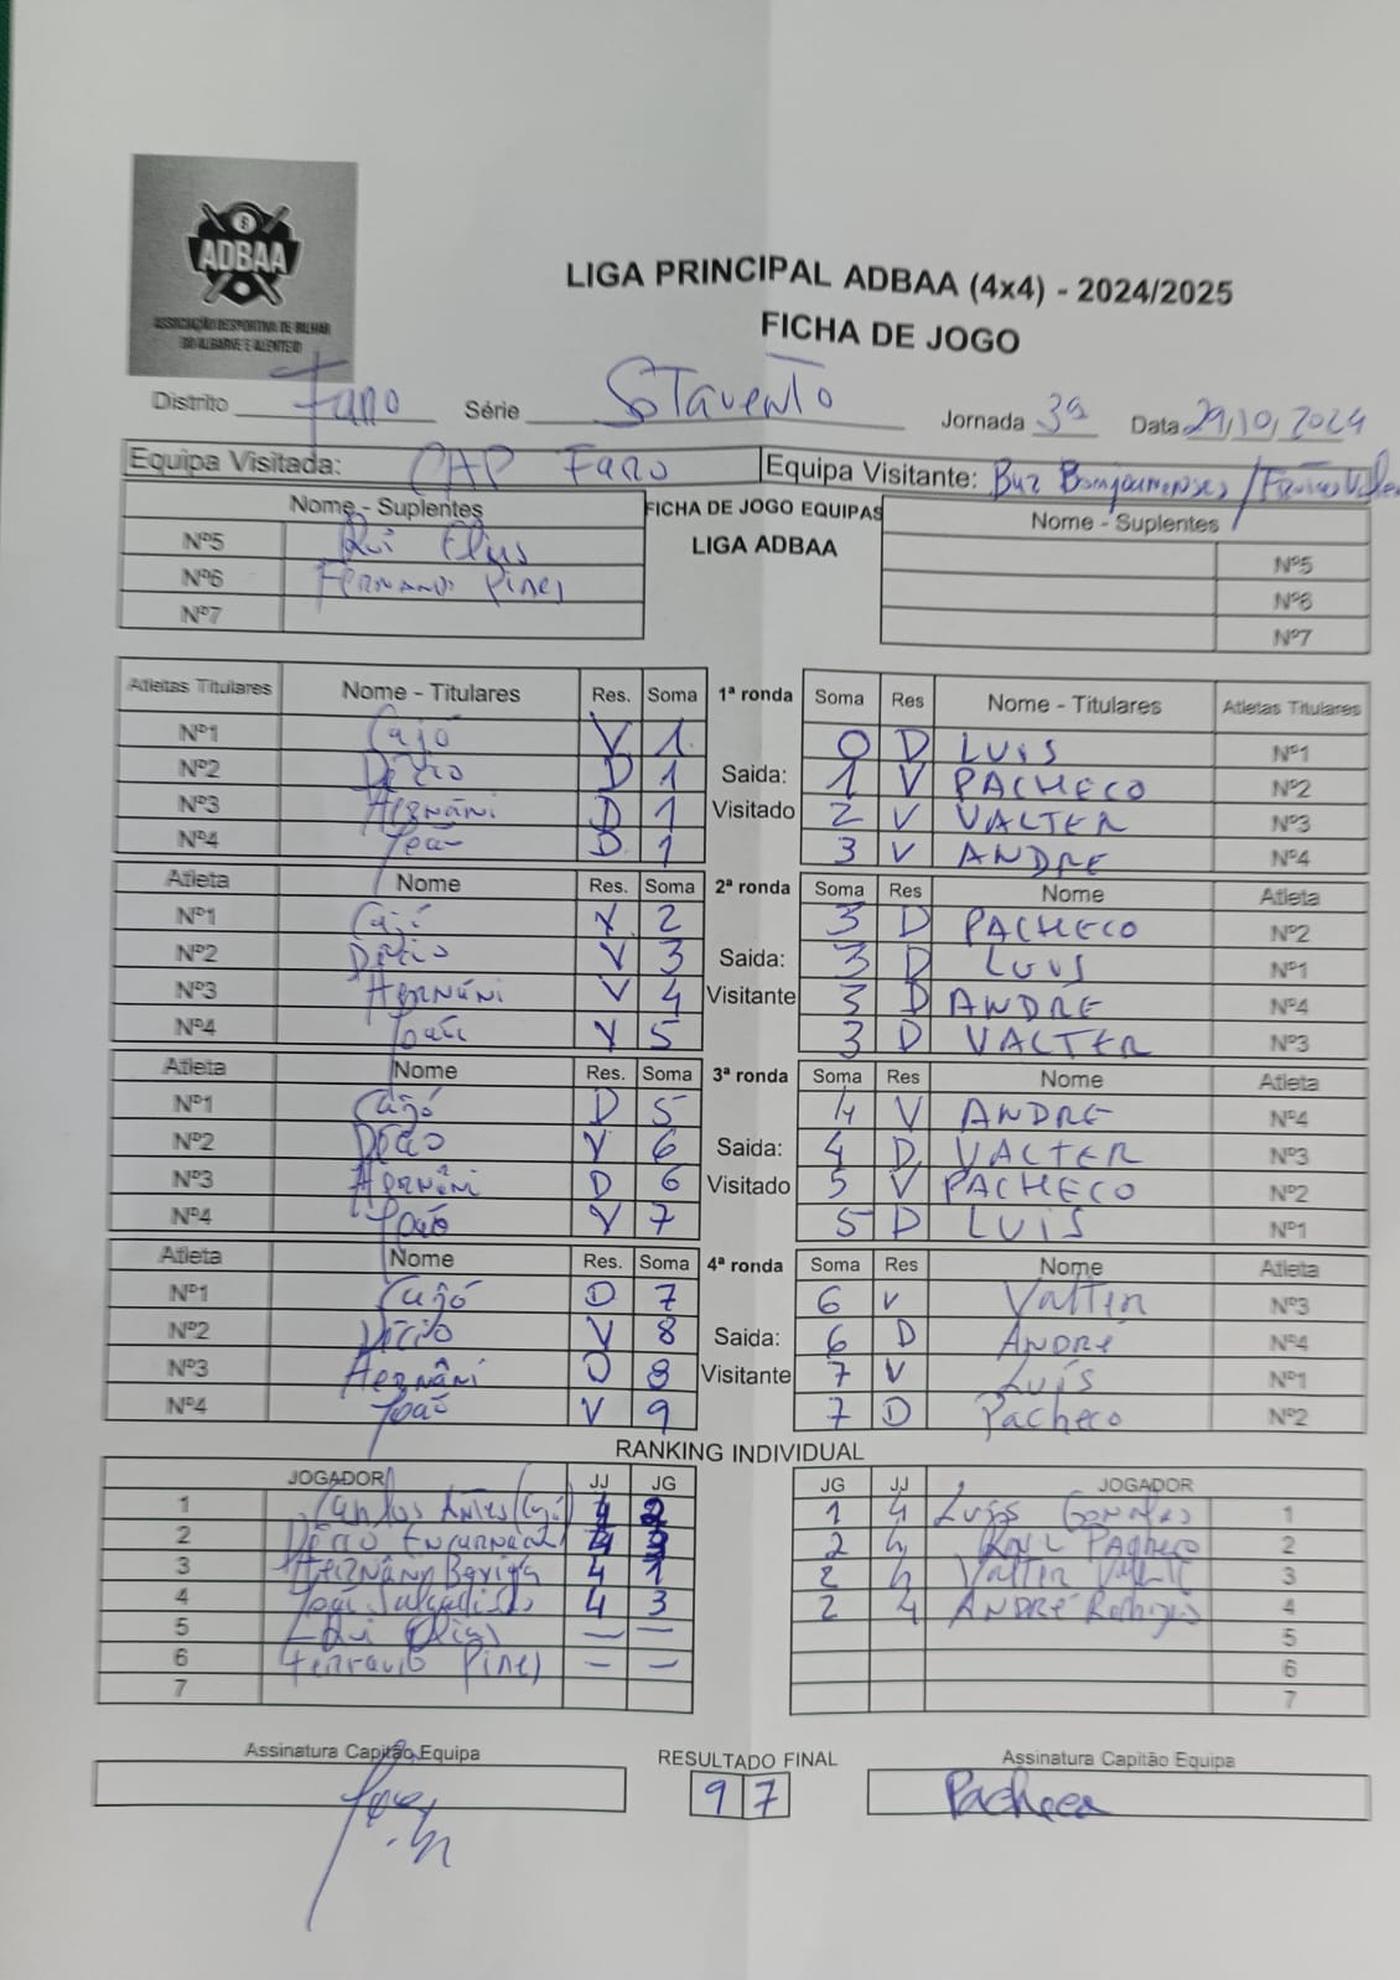 ADBAA
ASSOCIAÇÃO DESPORTIVA DE BILHAR
DO ALGARVE E ALENTEJO
LIGA PRINCIPAL ADBAA (4x4) - 2024/2025
FICHA DE JOGO
Distrito Faro Série SoTavenTo Jornada 3ª Data 29/10/2024
Equipa Visitada: CAP Faro Equipa Visitante: Bux Bonjoanenses /
Nome - Suplentes FICHA DE JOGO EQUIPAS Nome - Suplentes
Nº5 Rui Elias LIGA ADBAA Nº5
Nº6 Fernando Pires Nº6
Nº7 Nº7
Atletas Titulares Nome - Titulares Res. Soma 1ª ronda Soma Res Nome - Titulares Atletas Titulares
Nº1 Cajó V 1 0 D LUIS Nº1
Nº2 Décio D 1 Saida: 1 V PACHECO Nº2
Nº3 Hernâni D 1 Visitado 2 V VALTER Nº3
Nº4 João D 1 3 V ANDRE Nº4
Atleta Nome Res. Soma 2ª ronda Soma Res Nome Atleta
Nº1 Cajó V 2 3 D PACHECO Nº2
Nº2 Décio V 3 Saida: 3 D LUIS Nº1
Nº3 Hernâni V 4 Visitante 3 D ANDRE Nº4
Nº4 João V 5 3 D VALTER Nº3
Atleta Nome Res. Soma 3ª ronda Soma Res Nome Atleta
Nº1 Cajó D 5 4 V ANDRE Nº4
Nº2 Décio V 6 Saida: 4 D VALTER Nº3
Nº3 Hernâni D 6 Visitado 5 V PACHECO Nº2
Nº4 João V 7 5 D LUIS Nº1
Atleta Nome Res. Soma 4ª ronda Soma Res Nome Atleta
Nº1 Cajó D 7 6 V Valter Nº3
Nº2 Décio V 8 Saida: 6 D ANDRé Nº4
Nº3 Hernâni D 8 Visitante 7 V Luís Nº1
Nº4 João V 9 7 D Pacheco Nº2
RANKING INDIVIDUAL
JOGADOR JJ JG JG JJ JOGADOR
1 Carlos (Cajó) 4 2 1 4 Luís 1
2 Décio Encarnação 4 3 2 4 Pacheco 2
3 Hernâni 4 1 2 4 Valter 3
4 João 4 3 2 4 ANDRÉ Rodrigues 4
5 Rui Elias — — 5
6 Fernando Pires — — 6
7 7
Assinatura Capitão Equipa RESULTADO FINAL Assinatura Capitão Equipa
9 7 Pacheco